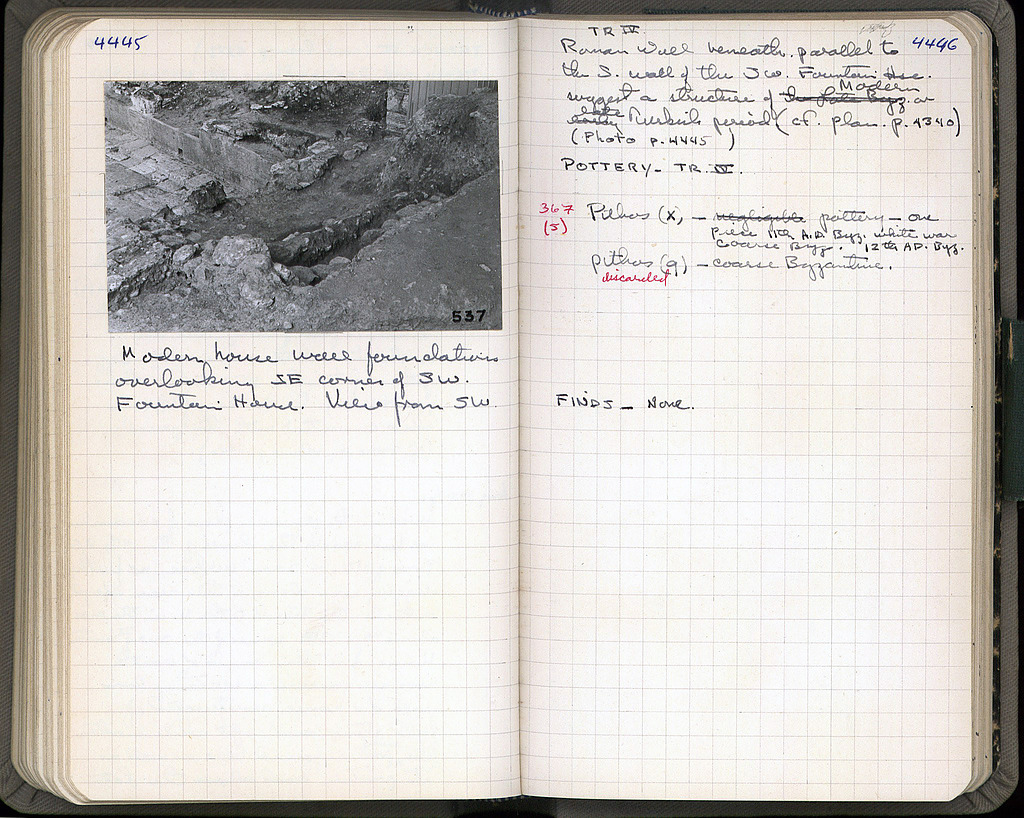 4445
537
Modern house wall foundations
overlooking SE corner of SW.
Fountain House. View from SW.
4446
TR IV
Roman Wall beneath. parallel to
the S. wall of the SW. Fountain Hse.
Modern
suggest a structure of the late Byz. or
late
early Turkish period (cf. plan. p. 4340)
(Photo p. 4445 )
POTTERY - TR. IV.
367
(5)
Pithos (x) - negligible pottery - one
piece 11th A.D. Byz. white ware
coarse Byz. 12th AD. Byz.
pithos (q) - coarse Byzantine.
discarded
FINDS - None.